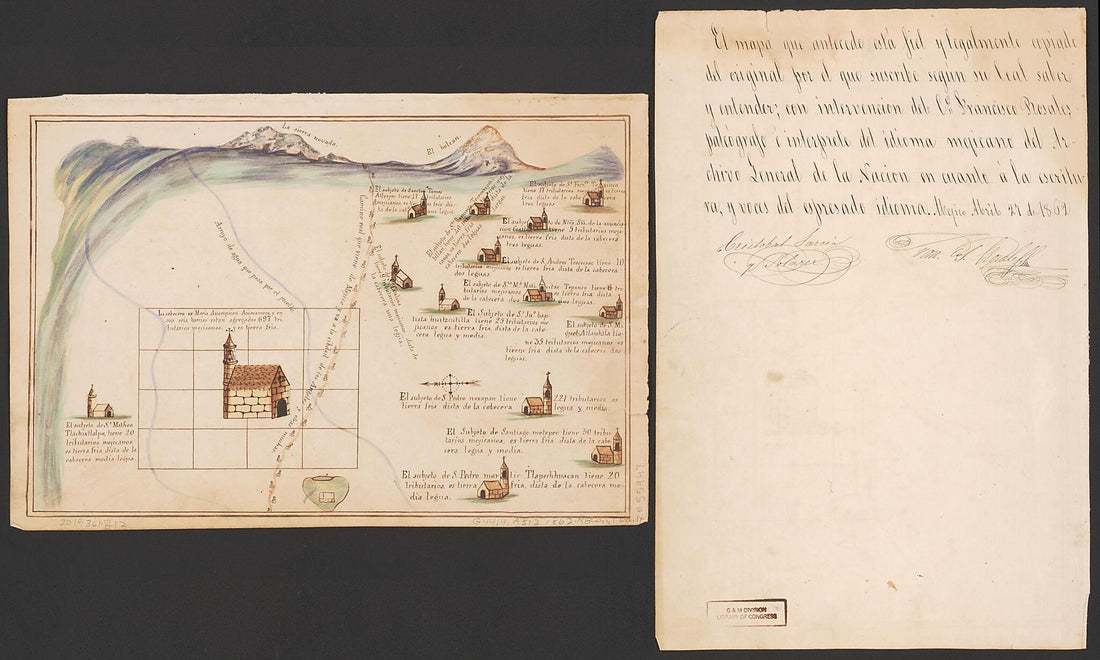 La sierra nevada.
El bolcan.
Arroyo de agua que pasa por el medio
Camino real que viene de Mejico y va a la ciudad de los Angeles y otras
La cabecera es Maria Asumpcion Amecameca, y en
sus seis barrios estan agregados 697 tri
butarios mejicanos, es tierra fria.
El subjeto de S.n Matheo
Tlachixtlalpa, tiene 20
tributarios mejicanos,
es tierra fria dista de la
cabecera media legua.
El subjeto de
tiene 17 tributarios
mejicanos, es tierra fria dista
de la cabecera
legua.
El subjeto de
tiene 17 tributarios
mejicanos, es tierra
fria dista de la cabecera
El subjeto de Ntra. Sra. de la anuncia
cion tiene 5 tributarios meji
canos, es tierra fria, dista de la cabecera
tres leguas.
El subjeto de S. Andres tiene 10
tributarios mejicanos es tierra fria dista de la cabecera
dos leguas.
El subjeto de S.ta M.a tiene 6 tri
butarios mejicanos es tierra fria, dista
de la cabecera dos leguas.
El Subjeto de S.n Ju.o bap
tista huitzcutitla tiene 25 tributarios me
jicanos es tierra fria, dista de la cabe
cera legua y media.
El subjeto de S. Mi
guel Atlauhtla tie
ne 35 tributarios mejicanos es
tierra fria dista de la cabecera dos
leguas.
El subjeto de S. Pedro nexapan tiene 221 tributarios es
tierra fria dista de la cabecera legua y media.
El Subjeto de Santiago metepec tiene 50 tribu
tarios mejicanos, es tierra fria dista de la cabe
cera legua y media.
El subjeto de S. Pedro martir, Tlapechhuacan tiene 20
tributarios, es tierra fria, dista de la cabecera me
dia legua.
2019361-R12
El mapa que antecede está fiel y legalmente copiado
del original por el que suscribe segun su leal saber
y entender; con intervencion del C.o Francisco Rosales
paleografo é interprete del idioma mejicano del Ar-
chivo General de la Nacion en cuanto á la escritu-
ra, y voces del espresado idioma. Mejico Abril 27 de 1864
Cristobal Garcia
y Salazar
G & M DIVISION
LIBRARY OF CONGRESS